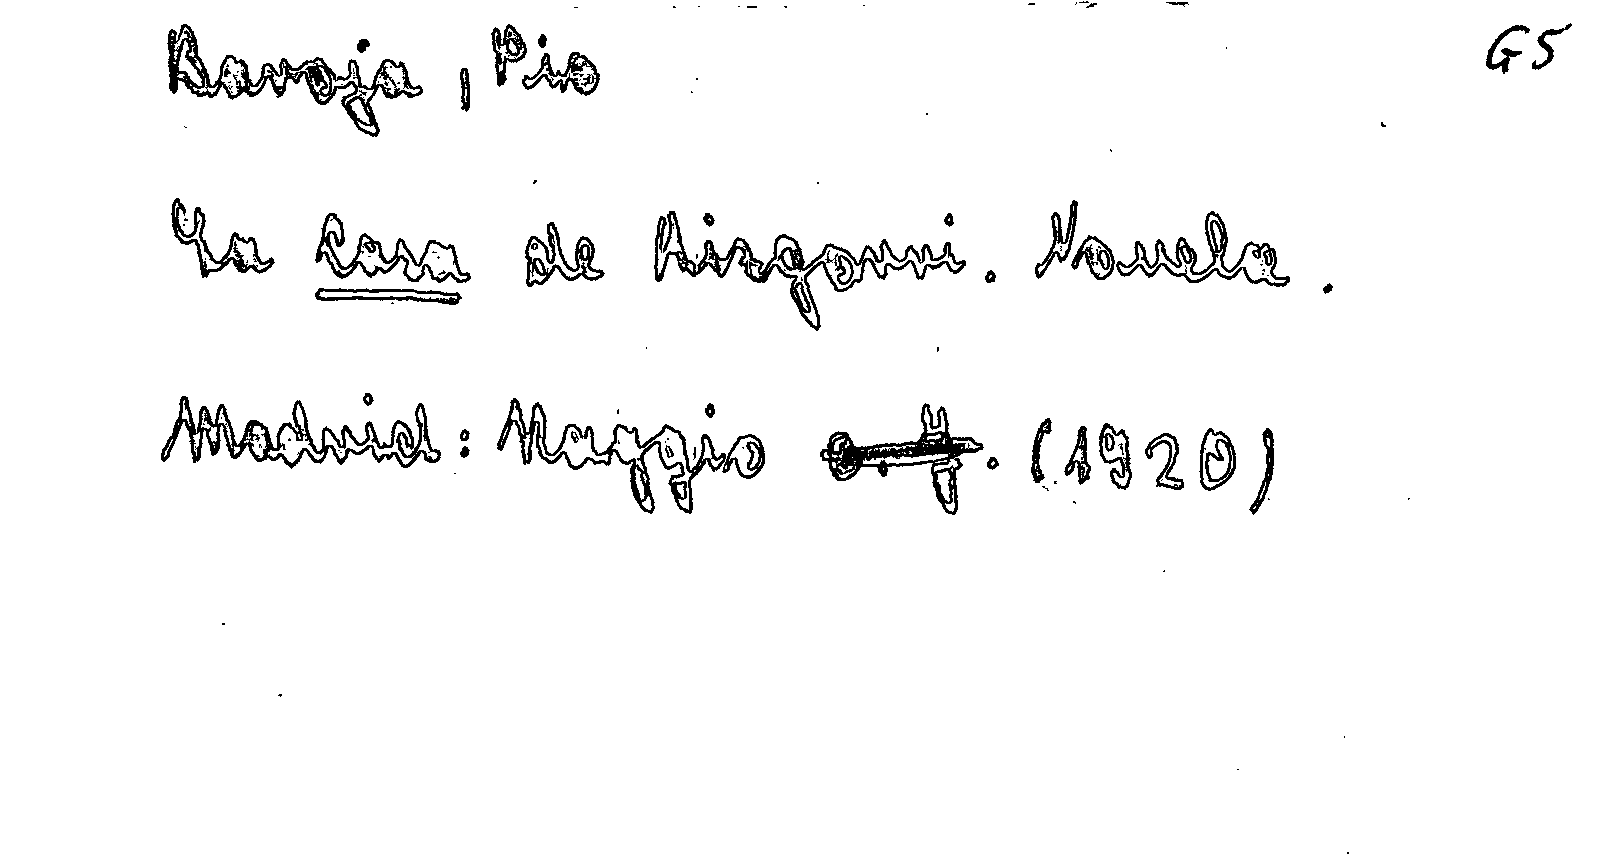 Baroja, Pio G5
La Casa de Aizgorri. Novela.
Madrid: Raggio . (1920)